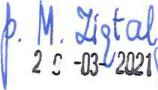 p. M. Ziętal
2 -03- 2021